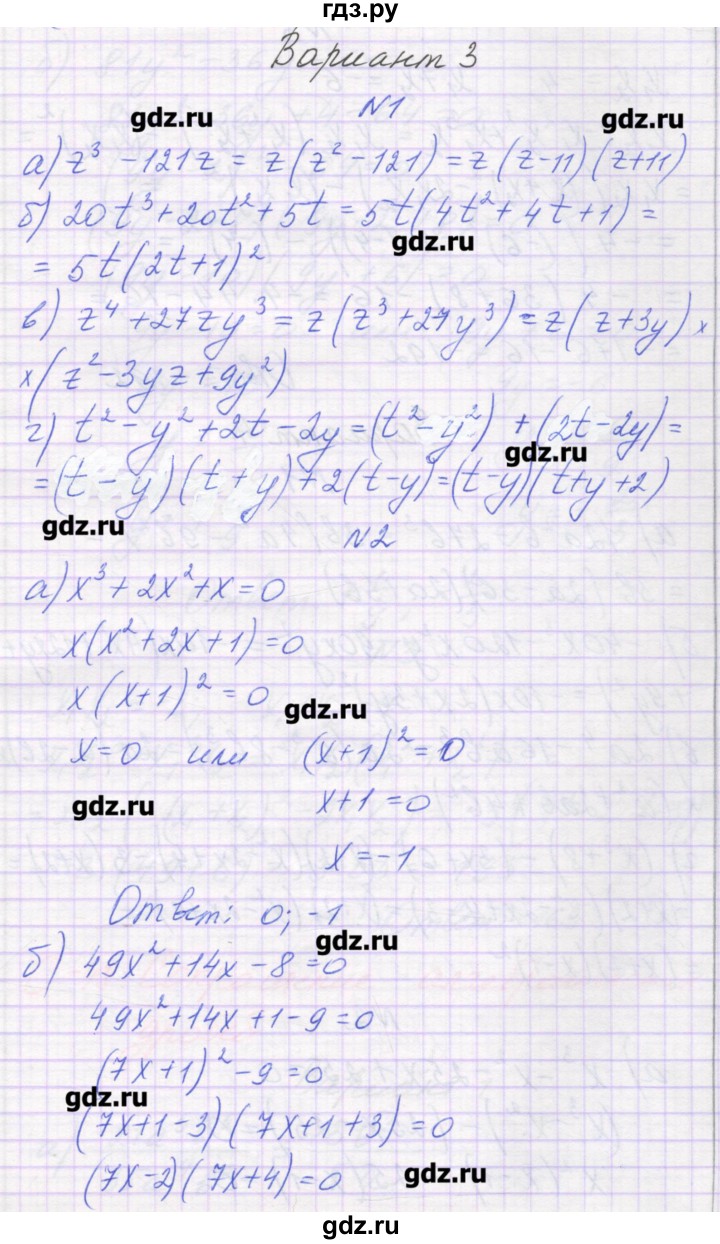 гдз.ру
Вариант 3
gdz.ru
№1
gdz.ru
а) z³ - 121z = z(z² - 121) = z(z-11)(z+11)
б) 20t³ + 20t² + 5t = 5t(4t² + 4t + 1) =
gdz.ru
= 5t(2t+1)²
в) z⁴ + 27zy³ = z(z³ + 27y³) = z(z+3y) ×
×(z² - 3yz + 9y²)
г) t² - y² + 2t - 2y = (t² - y²) + (2t - 2y) =
gdz.ru
= (t - y)(t + y) + 2(t - y) = (t - y)(t + y + 2)
gdz.ru
№2
а) x³ + 2x² + x = 0
x(x² + 2x + 1) = 0
x(x+1)² = 0
gdz.ru
x = 0 или (x+1)² = 0
gdz.ru
x+1 = 0
x = -1
Ответ: 0; -1
gdz.ru
б) 49x² + 14x - 8 = 0
49x² + 14x + 1 - 9 = 0
(7x + 1)² - 9 = 0
gdz.ru
(7x+1-3)(7x+1+3) = 0
(7x-2)(7x+4) = 0
gdz.ru
gdz.ru